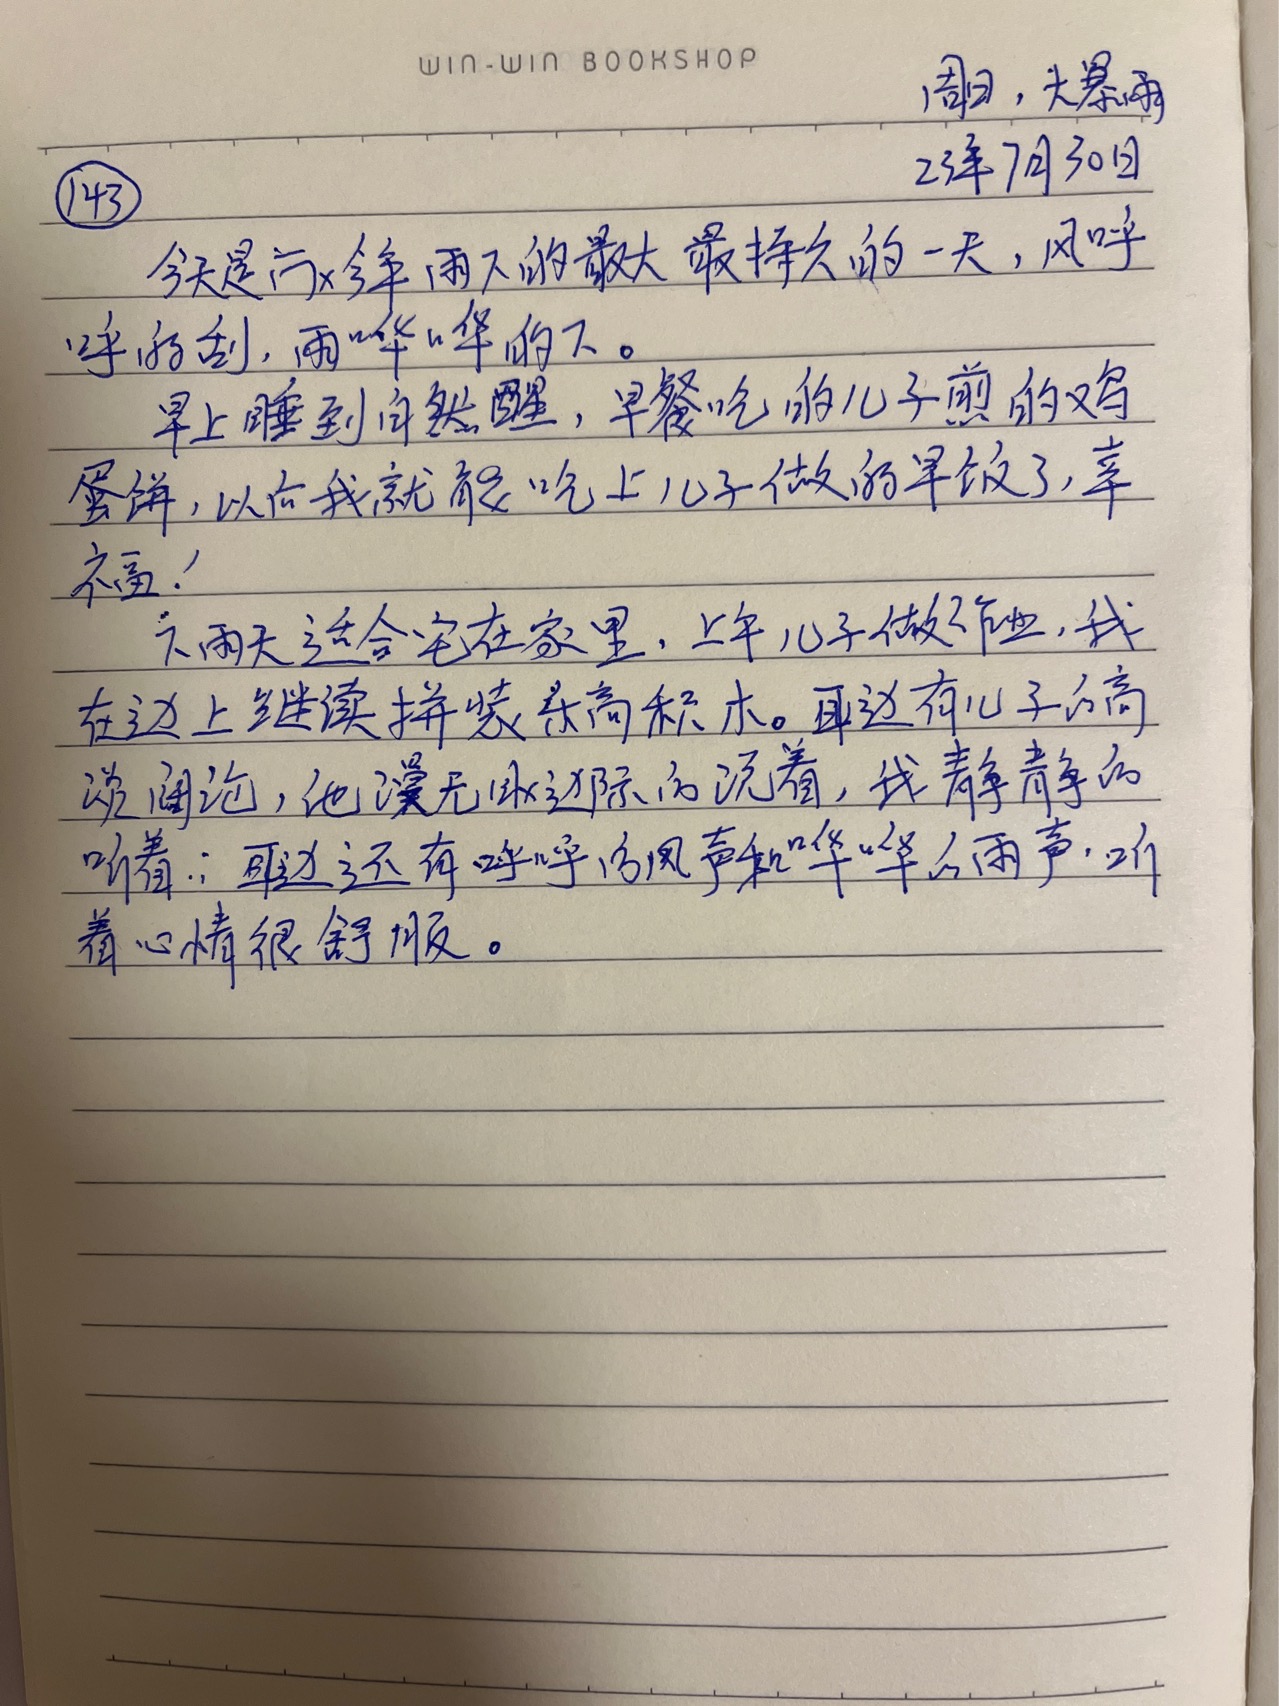 WIN-WIN BOOKSHOP
周日，大暴雨
23年7月30日
143
今天是入今年雨下的最大最持久的一天，风呼
呼的刮，雨哗哗的下。
早上睡到自然醒，早餐吃的儿子煎的鸡
蛋饼，以后我就能吃上儿子做的早饭了，幸
福！
下雨天适合宅在家里，上午儿子做作业，我
在边上继续拼装乐高积木。耳边有儿子的高
谈阔论，他漫无边际的说着，我静静的
听着；耳边还有呼呼的风声和哗哗的雨声，听
着心情很舒服。